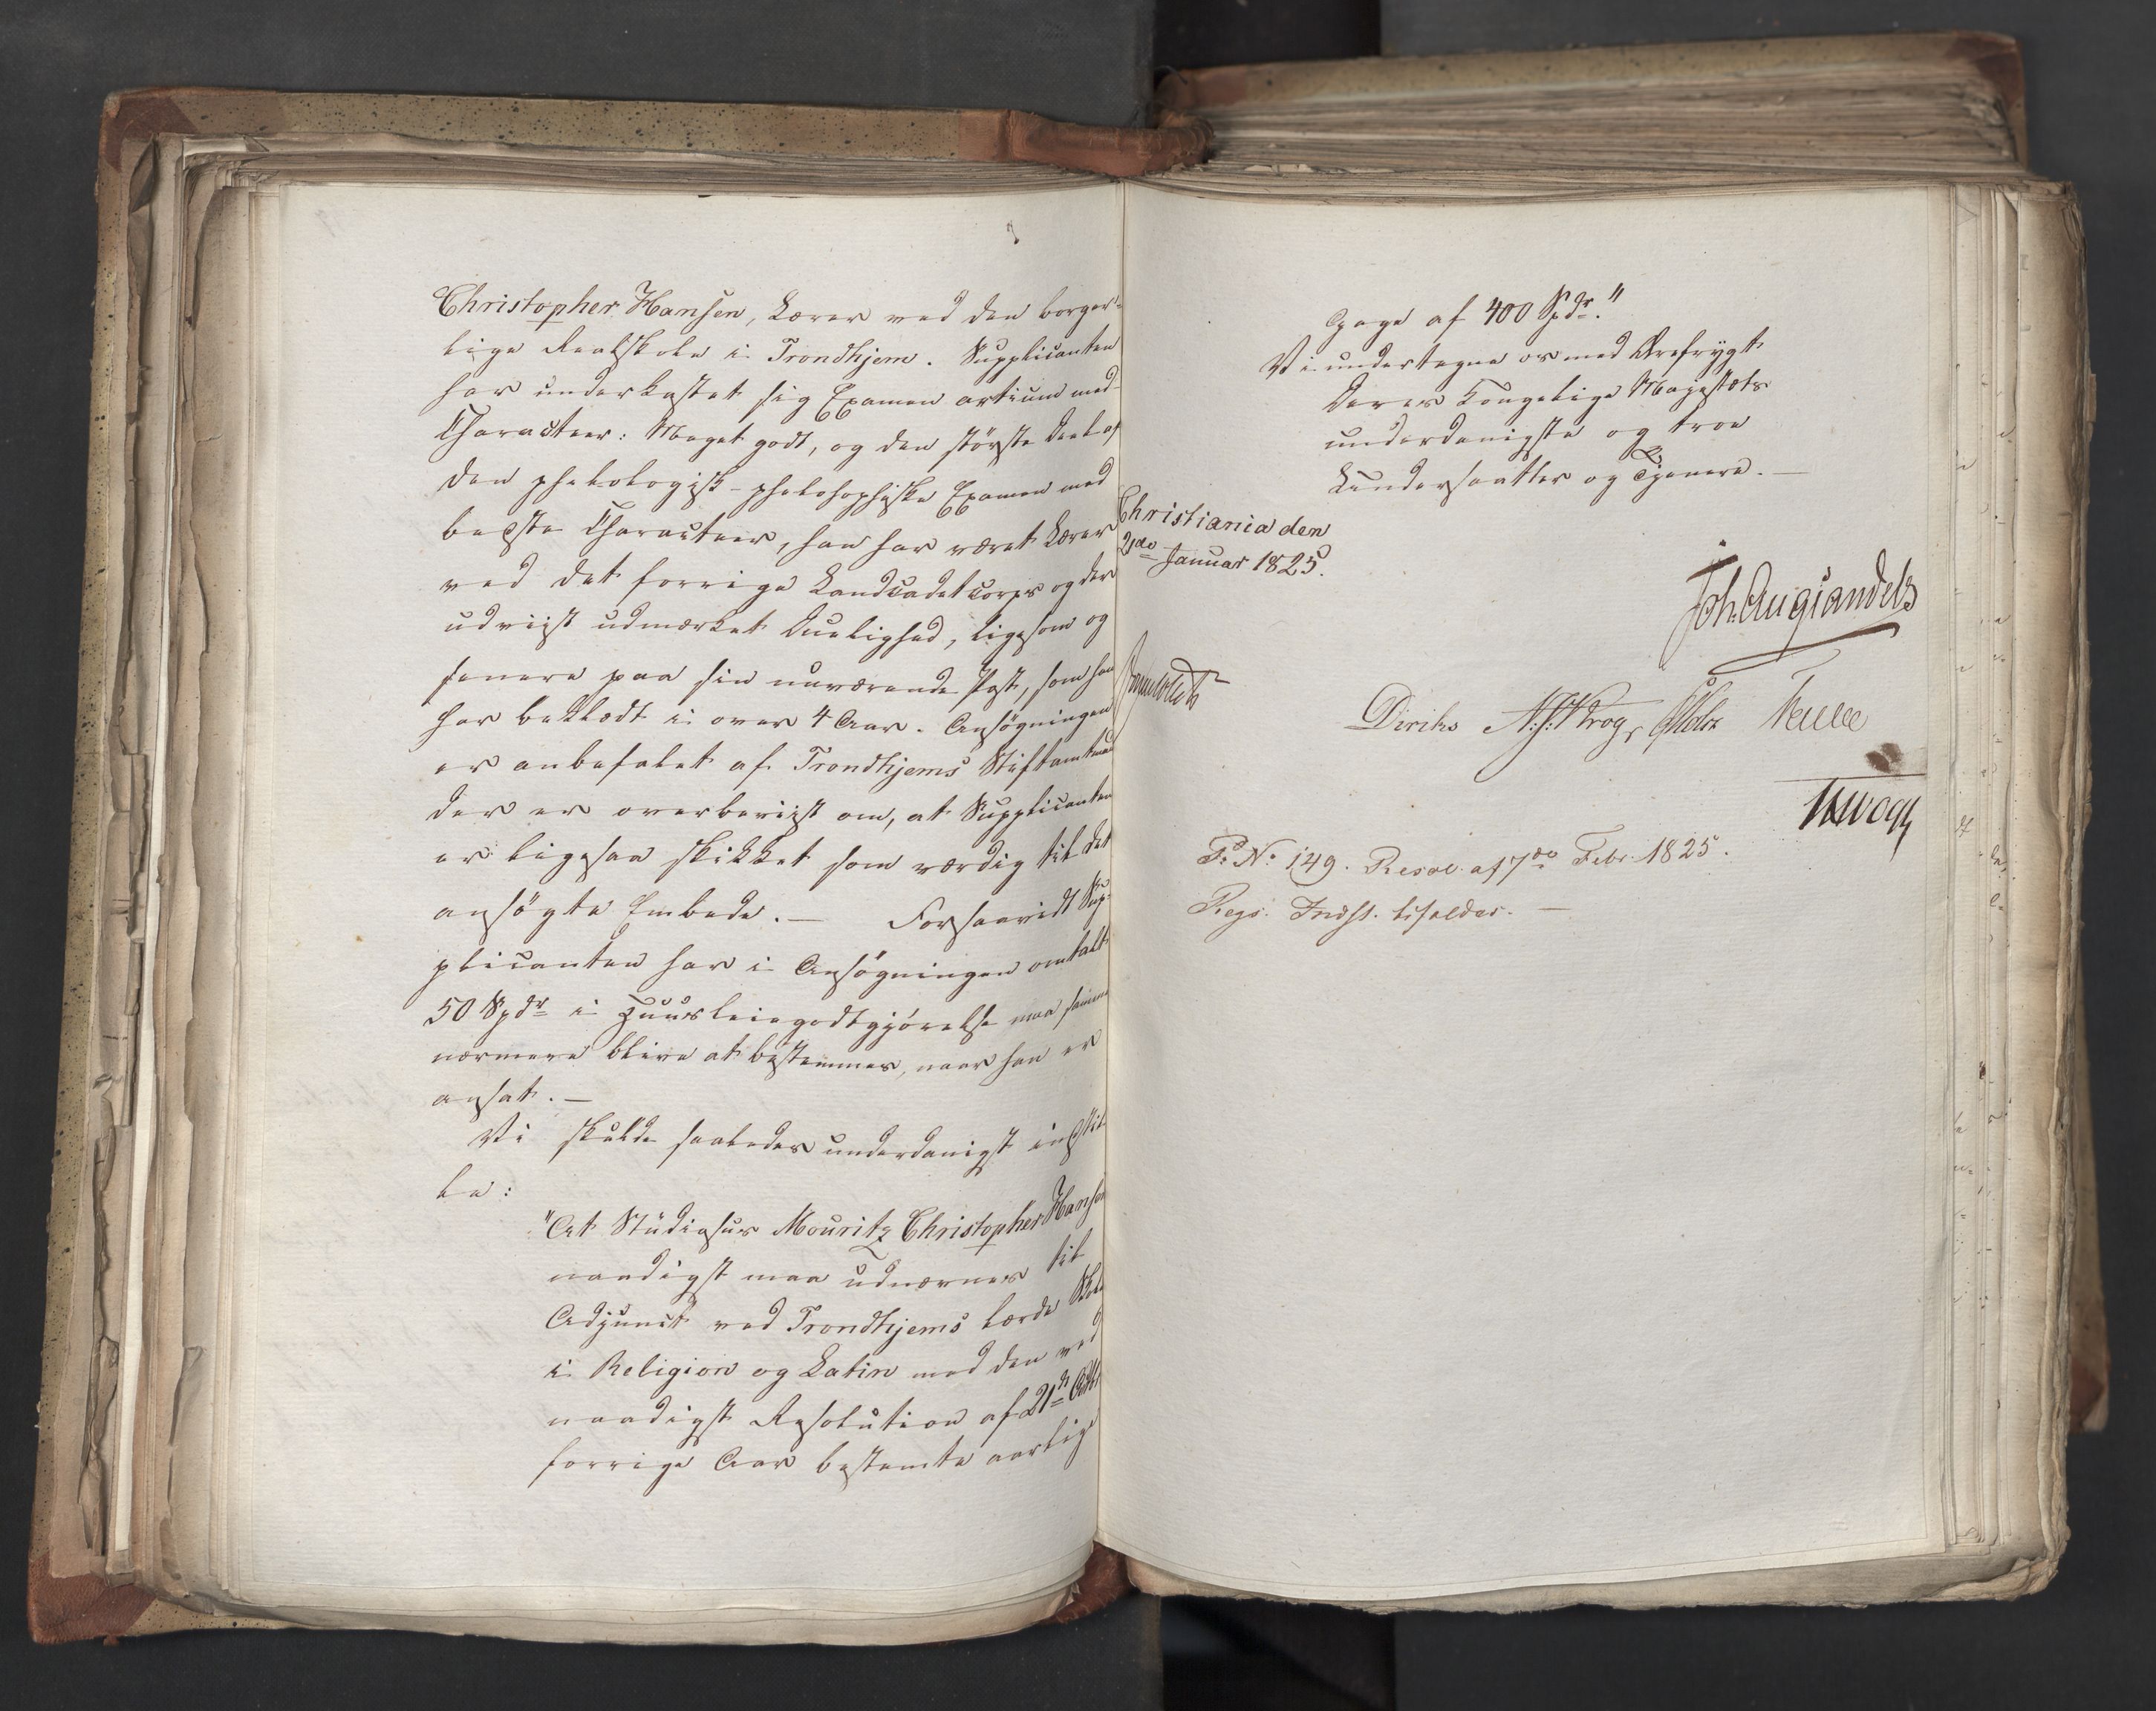 Christopher Hansen, Lærer ved den borger-
lige Realskole i Trondhjem. Supplicanten
har underkastet sig Examen artium med
Characteer: Meget godt, og den störste Deel af
den phelologisk-phelosophiske Examen med
bedste Characteer, han har været Lærer
ved det forrige Landcadetcorps og der
udviist udmærket Duelighed, ligesom og
senere paa sin nuværende Post, som han
har beklædt i over 4 Aar. Ansögningen
er anbefalet af Trondhjems Stiftamtmand
der er overbeviist om, at Supplicanten
er ligesaa skikket som værdig til det
ansögte Embede. — Forsaavidt Sup-
plicanten har i Ansögningen omtalt
50 Spdr i Huusleiegodtgjörelse maa samme
nærmere blive at bestemmes, naar han er
ansat. —
Vi skulde saaledes underdanigst indstil-
le:
"At Studiosus Mouritz Christopher Hansen
naadigst maa udnævnes til
Adjunct ved Trondhjems lærde Skole
i Religion og Latin med den ved
naadigst Resolution af 21de
forrige Aar bestemte aarlige
Gage af 400 Spdr."
Vi undertegne os med Ærefrygt
Deres Kongelige Majestæts
underdanigste og troe
Undersaatter og Tjenere. —
Christiania den
21de Januar 1825.
Joh: Aug Sandels
Diriks N.J. Krog Treschow
JHVogt
P: No 149. Resol. af 7de Febr 1825.
Regj. Indst. bifaldes. —